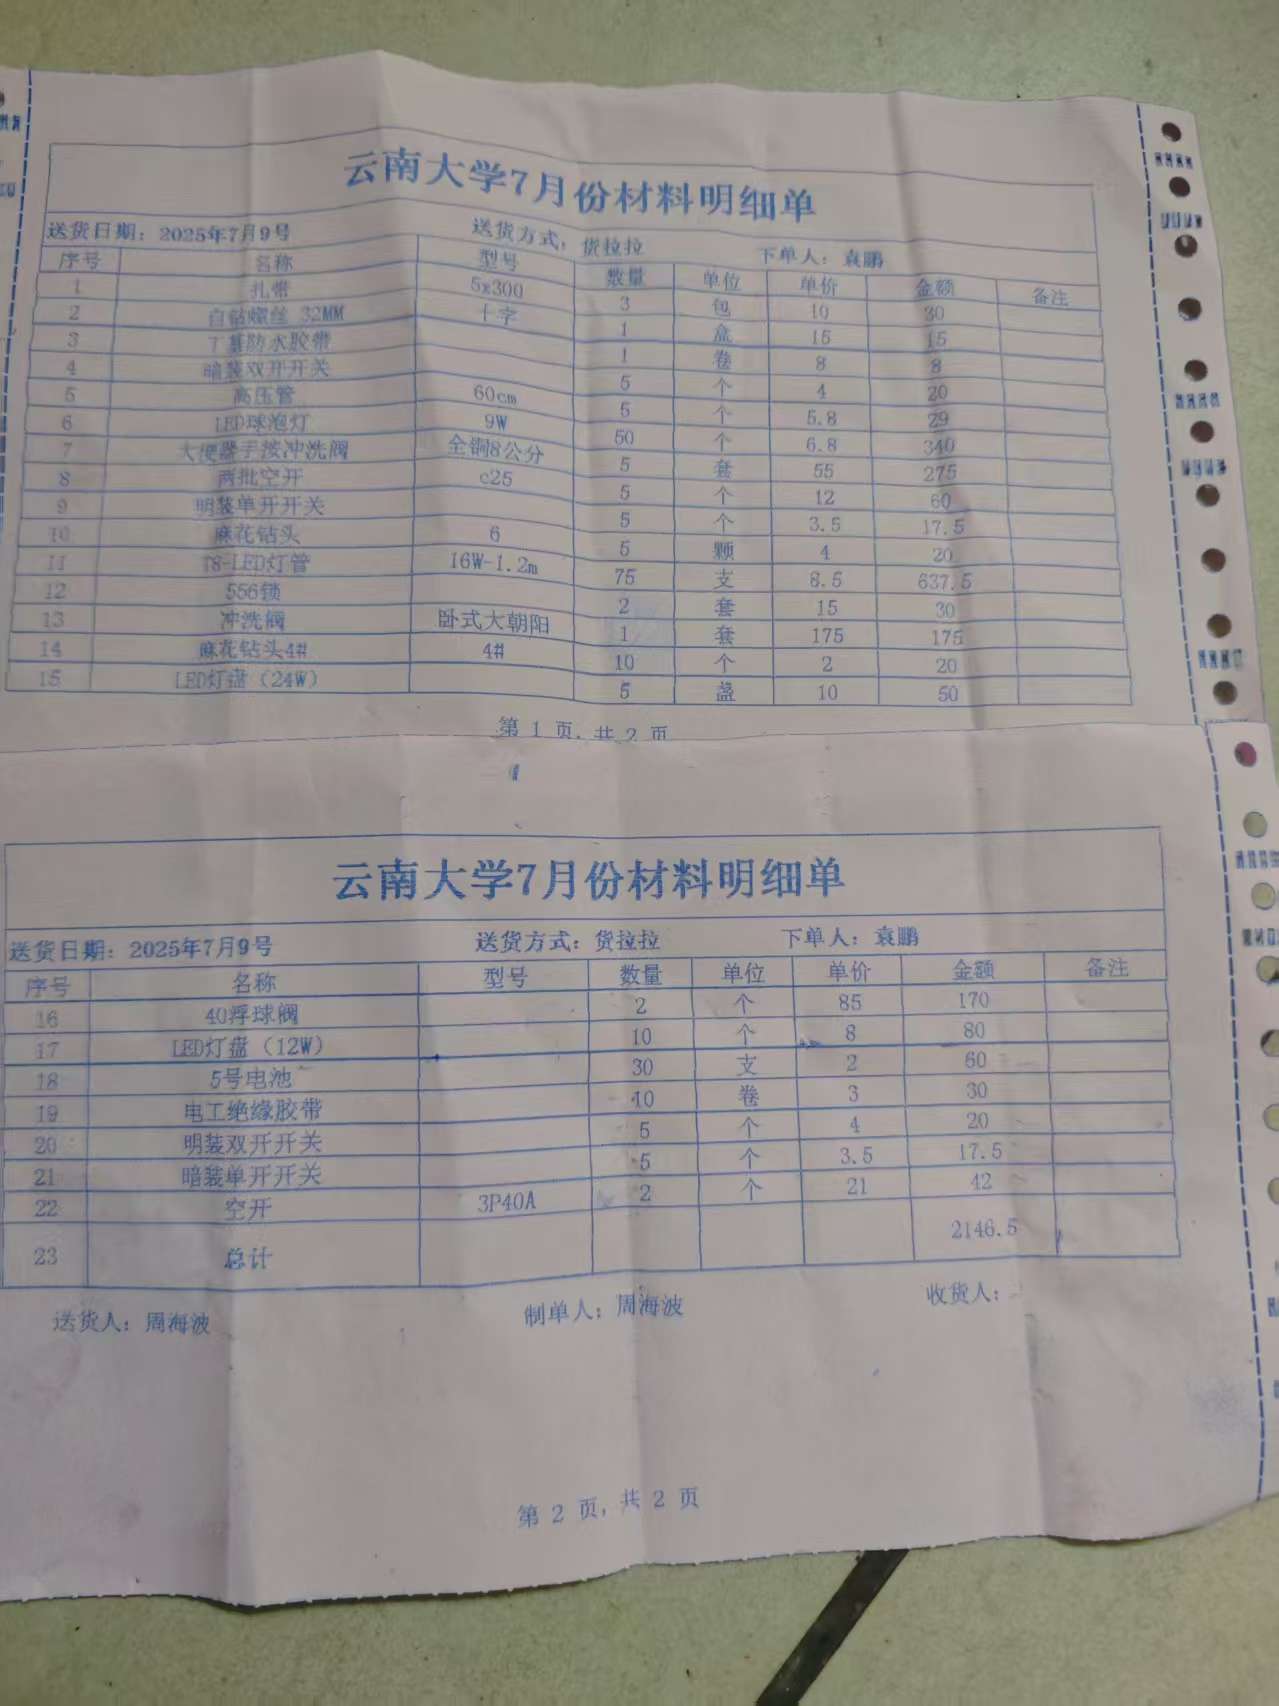 云南大学7月份材料明细单
送货日期：2025年7月9号 送货方式：货拉拉 下单人：袁鹏
序号 名称 型号 数量 单位 单价 金额 备注
1 扎带 5x300 3 包 10 30
2 自钻螺丝 32MM 十字 1 盒 15 15
3 丁基防水胶带 1 卷 8 8
4 暗装双开开关 5 个 4 20
5 高压管 60cm 5 个 5.8 29
6 LED球泡灯 9W 50 个 6.8 340
7 大便器手按冲洗阀 全铜8公分 5 套 55 275
8 两批空开 c25 5 个 12 60
9 明装单开开关 5 个 3.5 17.5
10 麻花钻头 6 5 颗 4 20
11 T8-LED灯管 16W-1.2m 75 支 8.5 637.5
12 556锁 2 套 15 30
13 冲洗阀 卧式大朝阳 1 套 175 175
14 麻花钻头4# 4# 10 个 2 20
15 LED灯盘（24W） 5 盏 10 50
第 1 页，共 2 页
云南大学7月份材料明细单
送货日期：2025年7月9号 送货方式：货拉拉 下单人：袁鹏
序号 名称 型号 数量 单位 单价 金额 备注
16 40浮球阀 2 个 85 170
17 LED灯盘（12W） 10 个 8 80
18 5号电池 30 支 2 60
19 电工绝缘胶带 10 卷 3 30
20 明装双开开关 5 个 4 20
21 暗装单开开关 5 个 3.5 17.5
22 空开 3P40A 2 个 21 42
23 总计 2146.5
送货人：周海波 制单人：周海波 收货人：
第 2 页，共 2 页